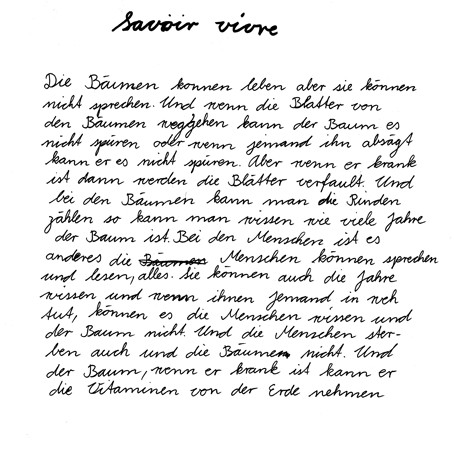 Savoir vivre
Die Bäumen konnen leben aber sie können
nicht sprechen. Und wenn die Blatter von
den Bäumen weggehen kann der Baum es
nicht spüren oder wenn jemand ihn absägt
kann er es nicht spüren. Aber wenn er krank
ist dann werden die Blätter verfault. Und
bei den Bäumen kann man die Rinden
zählen so kann man wissen wie viele Jahre
der Baum ist. Bei den Menschen ist es
anderes die Bäumen Menschen können sprechen
und lesen, alles. Sie können auch die Jahre
wissen und wenn ihnen Jemand in weh
tut, können es die Menschen wissen und
der Baum nicht. Und die Menschen ster-
ben auch und die Bäumen nicht. Und
der Baum, wenn er krank ist kann er
die Vitaminen von der Erde nehmen